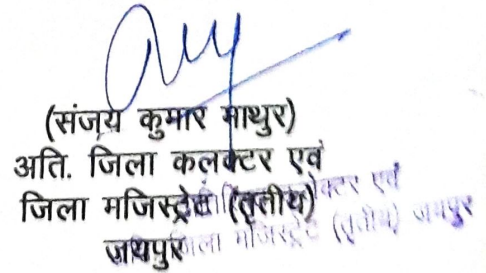 (संजय कुमार माथुर)
अति. जिला कलक्टर एवं
जिला मजिस्ट्रेट (तृतीय)
जयपुर
कलेक्टर एवं
जिला मजिस्ट्रेट (तृतीय) जयपुर